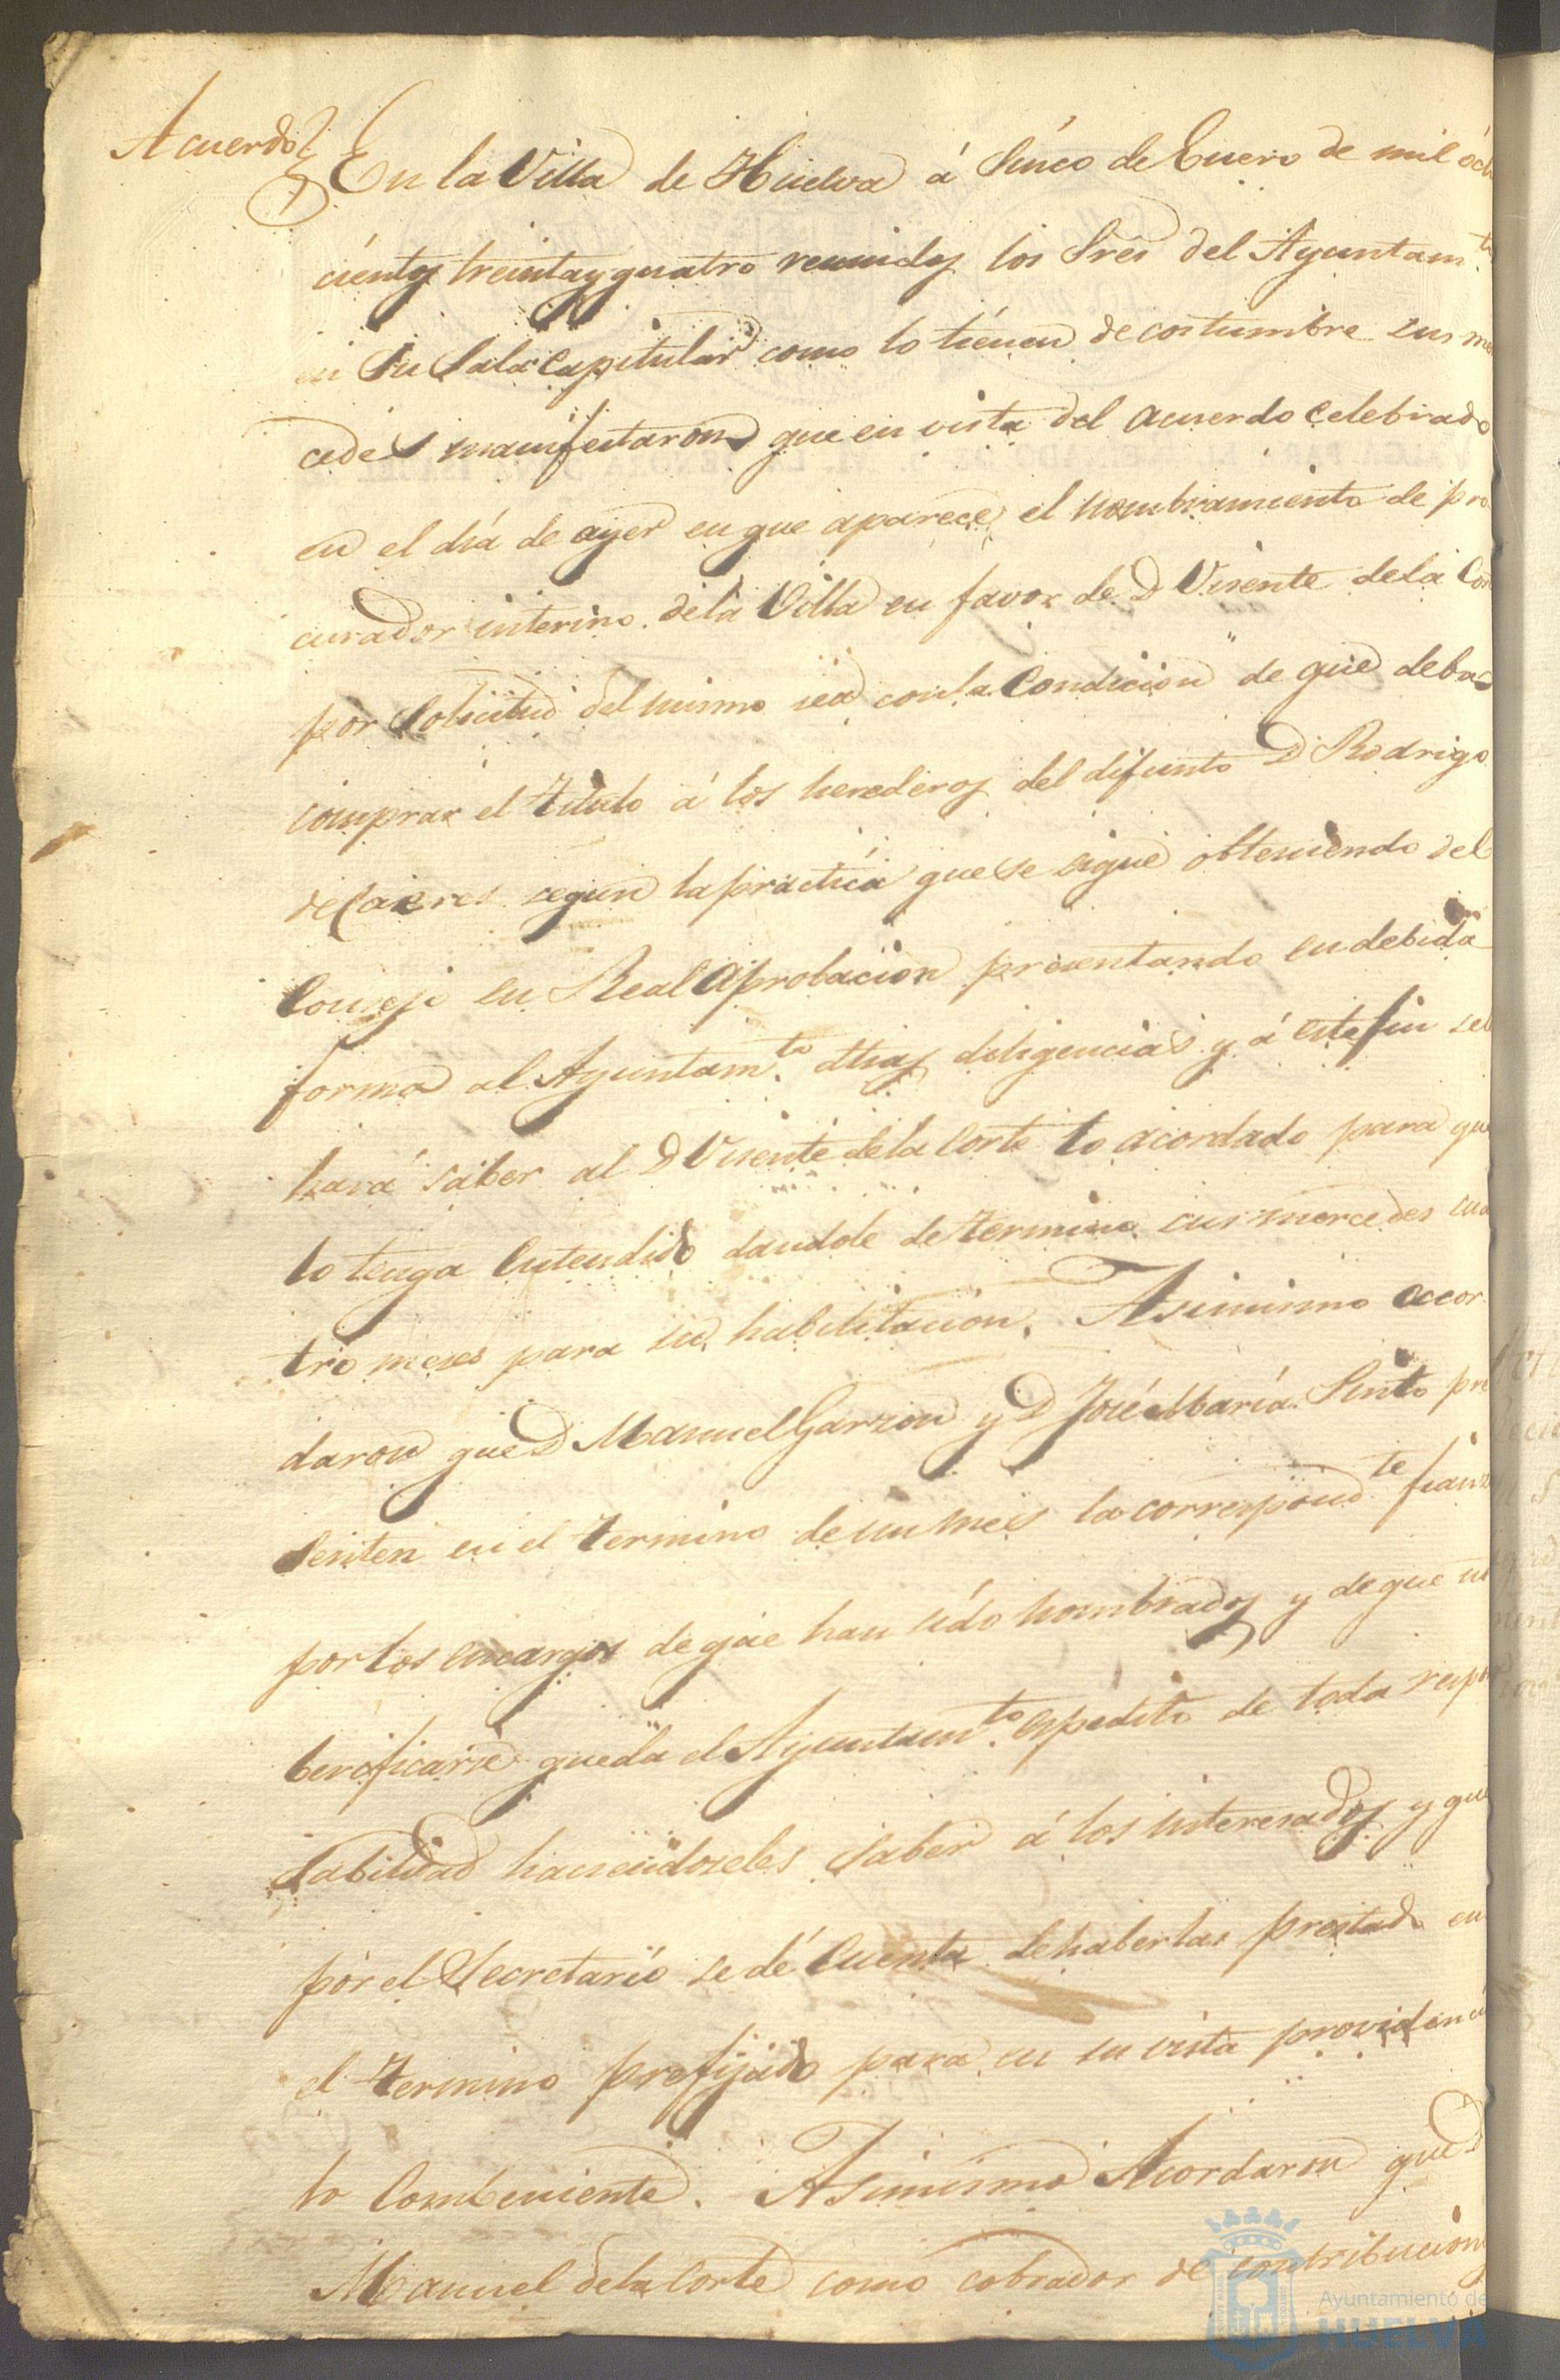 Acuerdo
En la Villa de Huelva á Sinco de Enero de mil och
cientos treinta y quatro reunidos los Sres del Ayuntam.to
en su Sala Capitular como lo tienen de costumbre sus mer
cedes manifestaron que en vista del acuerdo celebrado
en el día de ayer en que aparece el nombramiento de pro
curador interino de la Villa en favor de D Visente de la Cor
por solicitud del mismo sea con la Condicion de que deba
comprar el titulo á los herederos del difunto D Rodrigo
de Caseres segun la práctica que se sigue obteniendo del
Consejo su Real aprobacion presentando en debida
forma al Ayuntam.to dhas diligencias y á este fin se
hará saber al D Visente de la Corte lo acordado para que
lo tenga entendido dandole de termino sus mercedes cua
tro meses para su habilitacion. Asimismo acor
daron que D Manuel Garzon y D José María Sinto pre
senten en el termino de un mes la correspond.te fianz
por los encargos de que han sido nombrados y de que no
berificarse queda el Ayuntam.to espedito de toda respon
sabilidad haciendoseles saber á los interesados y que
por el Secretario se dé cuenta de haberlas prestado en
el termino prefijado para en su vista providenciar
lo combeniente. Asimismo Acordaron que D
Manuel de la Corte como cobrador de contribuciones
Ayuntamiento de
HUELVA